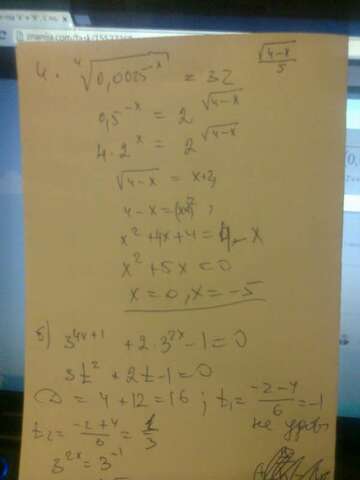 4. ⁴√(0,0025^(-x)) = 32 √(4-x)/5
0,5^(-x) = 2^√(4-x)
4·2^x = 2^√(4-x)
√(4-x) = x+2,
4-x=(x+2)² ;
x² + 4x+4 = 4-x
x² + 5x = 0
x = 0, x = -5
б) 3^(4x+1) + 2·3^(2x) - 1 = 0
3t² + 2t - 1 = 0
D = 4 + 12 = 16 ; t₁ = (-2-4)/6 = -1
не удовл
t₂ = (-2+4)/6 = 1/3
3^(2x) = 3^(-1)